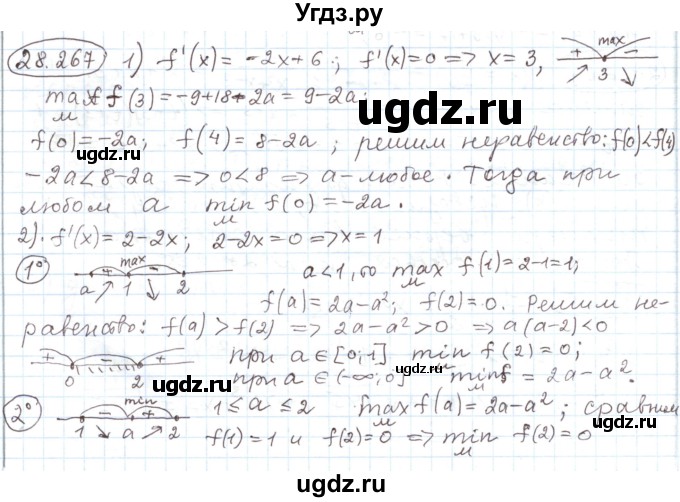 Угдз.ру
28.267 1) f'(x) = -2x+6; f'(x)=0 => x=3, + max - 3
max f(3) = -9+18-2a = 9-2a;
M
f(0) = -2a; f(4) = 8-2a; решим неравенство: f(0)<f(4)
-2a<8-2a => 0<8 => a-любое. Тогда при
любом a min f(0) = -2a.
M
2). f'(x) = 2-2x; 2-2x=0 => x=1
1° + max - a 1 2 a<1, то max f(1)=2-1=1;
M
f(a)=2a-a²; f(2)=0. Решим не-
равенство: f(a)>f(2) => 2a-a²>0 => a(a-2)<0
+ - + 0 2 при a∈[0;1] min f(2)=0;
M
при a∈(-∞;0] min f = 2a-a².
M
2° - min + 1 a 2 1≤a≤2 max f(a)=2a-a²; сравним
M
f(1)=1 и f(2)=0 => min f(2)=0
M
ugdz.ru
ugdz.ru
ugdz.ru
ugdz.ru
ugdz.ru
ugdz.ru
ugdz.ru
ugdz.ru
ugdz.ru